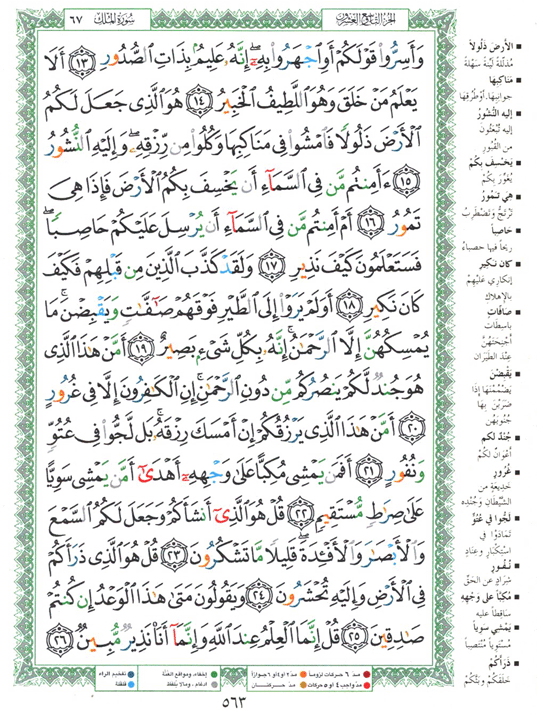 سُورَةُ المُلْكِ
٦٧
وَأَسِرُّوا۟ قَوْلَكُمْ أَوِ ٱجْهَرُوا۟ بِهِۦٓ ۖ إِنَّهُۥ عَلِيمٌۢ بِذَاتِ ٱلصُّدُورِ ١٣ أَلَا
يَعْلَمُ مَنْ خَلَقَ وَهُوَ ٱللَّطِيفُ ٱلْخَبِيرُ ١٤ هُوَ ٱلَّذِى جَعَلَ لَكُمُ
ٱلْأَرْضَ ذَلُولًا فَٱمْشُوا۟ فِى مَنَاكِبِهَا وَكُلُوا۟ مِن رِّزْقِهِۦ ۖ وَإِلَيْهِ ٱلنُّشُورُ
١٥ ءَأَمِنتُم مَّن فِى ٱلسَّمَآءِ أَن يَخْسِفَ بِكُمُ ٱلْأَرْضَ فَإِذَا هِىَ
تَمُورُ ١٦ أَمْ أَمِنتُم مَّن فِى ٱلسَّمَآءِ أَن يُرْسِلَ عَلَيْكُمْ حَاصِبًا ۖ
فَسَتَعْلَمُونَ كَيْفَ نَذِيرِ ١٧ وَلَقَدْ كَذَّبَ ٱلَّذِينَ مِن قَبْلِهِمْ فَكَيْفَ
كَانَ نَكِيرِ ١٨ أَوَلَمْ يَرَوْا۟ إِلَى ٱلطَّيْرِ فَوْقَهُمْ صَٰٓفَّٰتٍ وَيَقْبِضْنَ ۚ مَا
يُمْسِكُهُنَّ إِلَّا ٱلرَّحْمَٰنُ ۚ إِنَّهُۥ بِكُلِّ شَىْءٍۭ بَصِيرٌ ١٩ أَمَّنْ هَٰذَا ٱلَّذِى
هُوَ جُندٌ لَّكُمْ يَنصُرُكُم مِّن دُونِ ٱلرَّحْمَٰنِ ۚ إِنِ ٱلْكَٰفِرُونَ إِلَّا فِى غُرُورٍ
٢٠ أَمَّنْ هَٰذَا ٱلَّذِى يَرْزُقُكُمْ إِنْ أَمْسَكَ رِزْقَهُۥ ۚ بَل لَّجُّوا۟ فِى عُتُوٍّ
وَنُفُورٍ ٢١ أَفَمَن يَمْشِى مُكِبًّا عَلَىٰ وَجْهِهِۦٓ أَهْدَىٰٓ أَمَّن يَمْشِى سَوِيًّا
عَلَىٰ صِرَٰطٍ مُّسْتَقِيمٍ ٢٢ قُلْ هُوَ ٱلَّذِىٓ أَنشَأَكُمْ وَجَعَلَ لَكُمُ ٱلسَّمْعَ
وَٱلْأَبْصَٰرَ وَٱلْأَفْـِٔدَةَ ۖ قَلِيلًا مَّا تَشْكُرُونَ ٢٣ قُلْ هُوَ ٱلَّذِى ذَرَأَكُمْ
فِى ٱلْأَرْضِ وَإِلَيْهِ تُحْشَرُونَ ٢٤ وَيَقُولُونَ مَتَىٰ هَٰذَا ٱلْوَعْدُ إِن كُنتُمْ
صَٰدِقِينَ ٢٥ قُلْ إِنَّمَا ٱلْعِلْمُ عِندَ ٱللَّهِ وَإِنَّمَآ أَنَا۠ نَذِيرٌ مُّبِينٌ ٢٦
الأرضَ ذَلُولاً
مُذَلَّلَةً لَيِّنَةً سَهْلَةً
مَنَاكِبِهَا
جَوانِبِها. أو طُرُقِها
إليه النُّشُورُ
إليه تُبْعَثُونَ
من القُبُورِ
يَخْسِفَ بِكُمُ
يُغَوِّرَ بِكُمْ
هِيَ تَمُورُ
تَرْتَجُّ وتَضْطَرِبُ
حاصِباً
ريحاً فيها حصباءُ
كان نَكِيرِ
إنكاري عليهِمْ
بالإهلاكِ
صافّاتٍ
باسِطاتٍ
أَجْنِحَتَهُنَّ
عِنْدَ الطَّيَرانِ
يَقْبِضْنَ
يَضْمُمْنَهَا إذا
ضَرَبْنَ بها
جُنُوبَهُن
جُنْدٌ لكم
أَعْوَانٌ لكُمْ
غُرُورٍ
خَدِيعَةٍ من
الشَّيْطانِ وجُنْدِه
لَجُّوا في عُتُوٍّ
تَمَادَوْا في
استِكْبارٍ وعنادٍ
نُفُورٍ
شِرَادٍ عن الحَقِّ
مُكِبّاً على وَجْهِهِ
ساقِطاً عليه
يَمْشِي سَوِيّاً
مُسْتَوِياً مُنْتَصِباً
ذَرَأَكُمْ
خَلَقَكُمْ وبَثَّكُمْ
مدّ ٦ حركات لزوماً
مدّ ٢ أو ٤ أو ٦ جوازاً
إخفاء، ومواقع الغُنَّة
تفخيم الراء
مدّ واجب ٤ أو ٥ حركات
مدّ حركتان
إدغام، ومالا يُلفَظ
قلقلة
٥٦٣